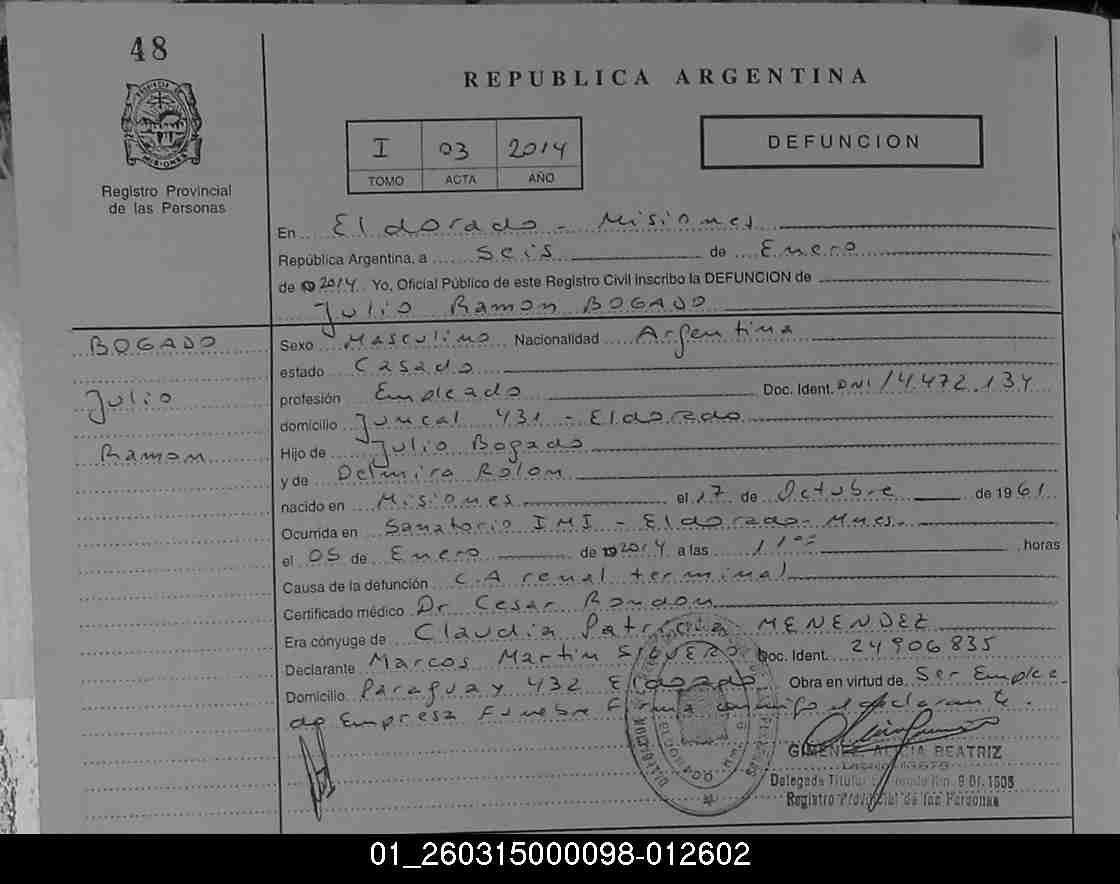 48
REPUBLICA ARGENTINA
I 03 2014
TOMO ACTA AÑO
DEFUNCION
MISIONES
Registro Provincial
de las Personas
En Eldorado - Misiones
República Argentina, a seis de Enero
de 2014 Yo, Oficial Público de este Registro Civil inscribo la DEFUNCION de
Julio Ramon BOGADO
BOGADO
Julio
Ramon
Sexo Masculino Nacionalidad Argentina
estado Casado
profesión Empleado Doc. Ident. DNI 14.472.134
domicilio Juncal 431 - Eldorado
Hijo de Julio Bogado
y de Delmira Rolon
nacido en Misiones el 17 de Octubre de 1961
Ocurrida en Sanatorio IMI - Eldorado - Mnes.
el 05 de Enero de 2014 a las 11 horas
Causa de la defunción C.A renal terminal
Certificado médico Dr Cesar Rondon
Era cónyuge de Claudia Patricia MENENDEZ
Declarante Marcos Martin Doc. Ident. 24906835
Domicilio Paraguay 432 Eldorado Obra en virtud de Ser Emplea-
do Empresa Funebre Firma conmigo el declarante.
BEATRIZ
Delegada Titular
Registro Provincial de las Personas
01_260315000098-012602